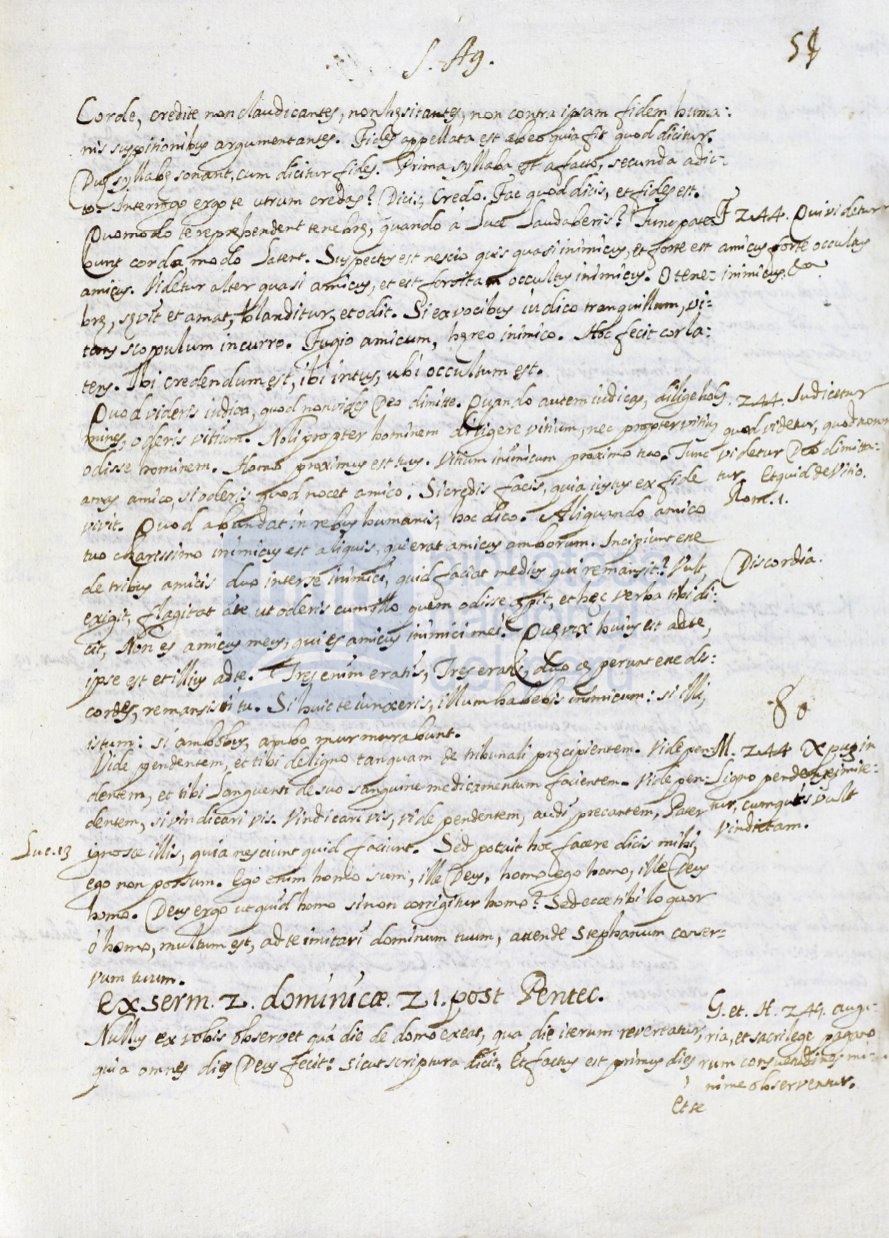 S. Ag.
51
Corde, credite non claudicantes, non hęsitantes, non contra ipsam fidem huma:
nis suspitionibus argumentantes. Fides appellata est ab eo quia fit quod dicitur.
Duę syllabę sonant, cum dicitur fides. Prima syllaba est a facto, secunda a dic-
to. Interrogo ergo te utrum credas? Dicis, Credo. Fac quod dicis, et fides est.
Quomodo te repręhendent tenebrę, quando à Luce Laudaberis? Tunc pate
bunt corda, modo Latent. Suspectus est nescio quis quasi inimicus, et forte est
amicus. Videtur alter quasi amicus, et est forsitam occultus inimicus. O tene:
brę, sęvit et amat, blanditur, et odit. Si ex vocibus iudico tranquillum, vi-
tans scopulum incurro. Fugio amicum, hęreo inimico. Hoc fecit cor la:
tens. Ibi credendum est, ibi intus, ubi occultum est.
F 244. Qui videtur
amicus forte occultus
inimicus. Ca.
Quod videris iudica, quod non vides Deo dimitte. Quando autem iudicas, dilige ho
mines, oderis vitium. Noli propter hominem diligere vitium, nec propter vitium
odisse hominem. Homo proximus est tuus. Vitium inimicum proximo tuo. Tunc
amas amico, si oderis quod nocet amico. Si credis facis, quia iustus ex fide
vivit. Quod abundat in rebus humanis, hoc dico. Aliquando amico
tuo charissimo inimicus est aliquis, qui erat amicus amborum. Incipiunt esse
de tribus amicis duo inter se inimici, quid faciat medius qui remansit? Vult,
exigit, flagitat à te ut oderis cum illo quem odisse cępit, et hęc verba tibi di:
cit, Non es amicus meus, qui es amicus inimici mei. Quę vox huius est ad te,
ipse est et illius ad te. Tres enim eratis, Tres eratis, duo cęperunt esse dis
cordes, remansisti tu. Si huic te iunxeris, illum habebis inimicum: si illi,
istum: si ambobus, ambo murmurabunt.
244. Judicetur
quod videtur, quod non
videtur Deo dimitta:
tur. Et quid de vitio.
Rom. 1.
Discordia.
80
Vide pendentem, et tibi de ligno tanquam de tribunali pręcipientem. Vide pen-
dentem, et tibi Languenti de suo sanguine medicamentum facientem. Vide pen-
dentem, si vindicari vis. Vindicari vis, vide pendentem, audi precantem, Pater
ignosce illis, quia nesciunt quid faciunt. Sed potuit hoc facere dicis mihi,
ego non possum. Ego enim homo sum, ille Deus, homo ego homo, ille Deus
homo. Deus ergo ut quid homo si non corrigitur homo? Sed ecce tibi loquor
ô homo, multum est, ad te imitari dominum tuum, attende Stephanum conser-
vum tuum.
M. 244 Xpus in
Ligno pendens imite-
tur, cum quis vult
vindictam.
Luc. 13
Ex serm. 2. dominicæ. 21. post Pentec.
Nullus ex vobis observet quâ die de domo exeat, qua die iterum revertatur,
quia omnes dies Deus fecit: sicut scriptura dicit, Et factus est primus dies
G. et. H. 249. augu
ria, et sacrilegę pagano
rum consuetudines mi
nime observentur.
Et se